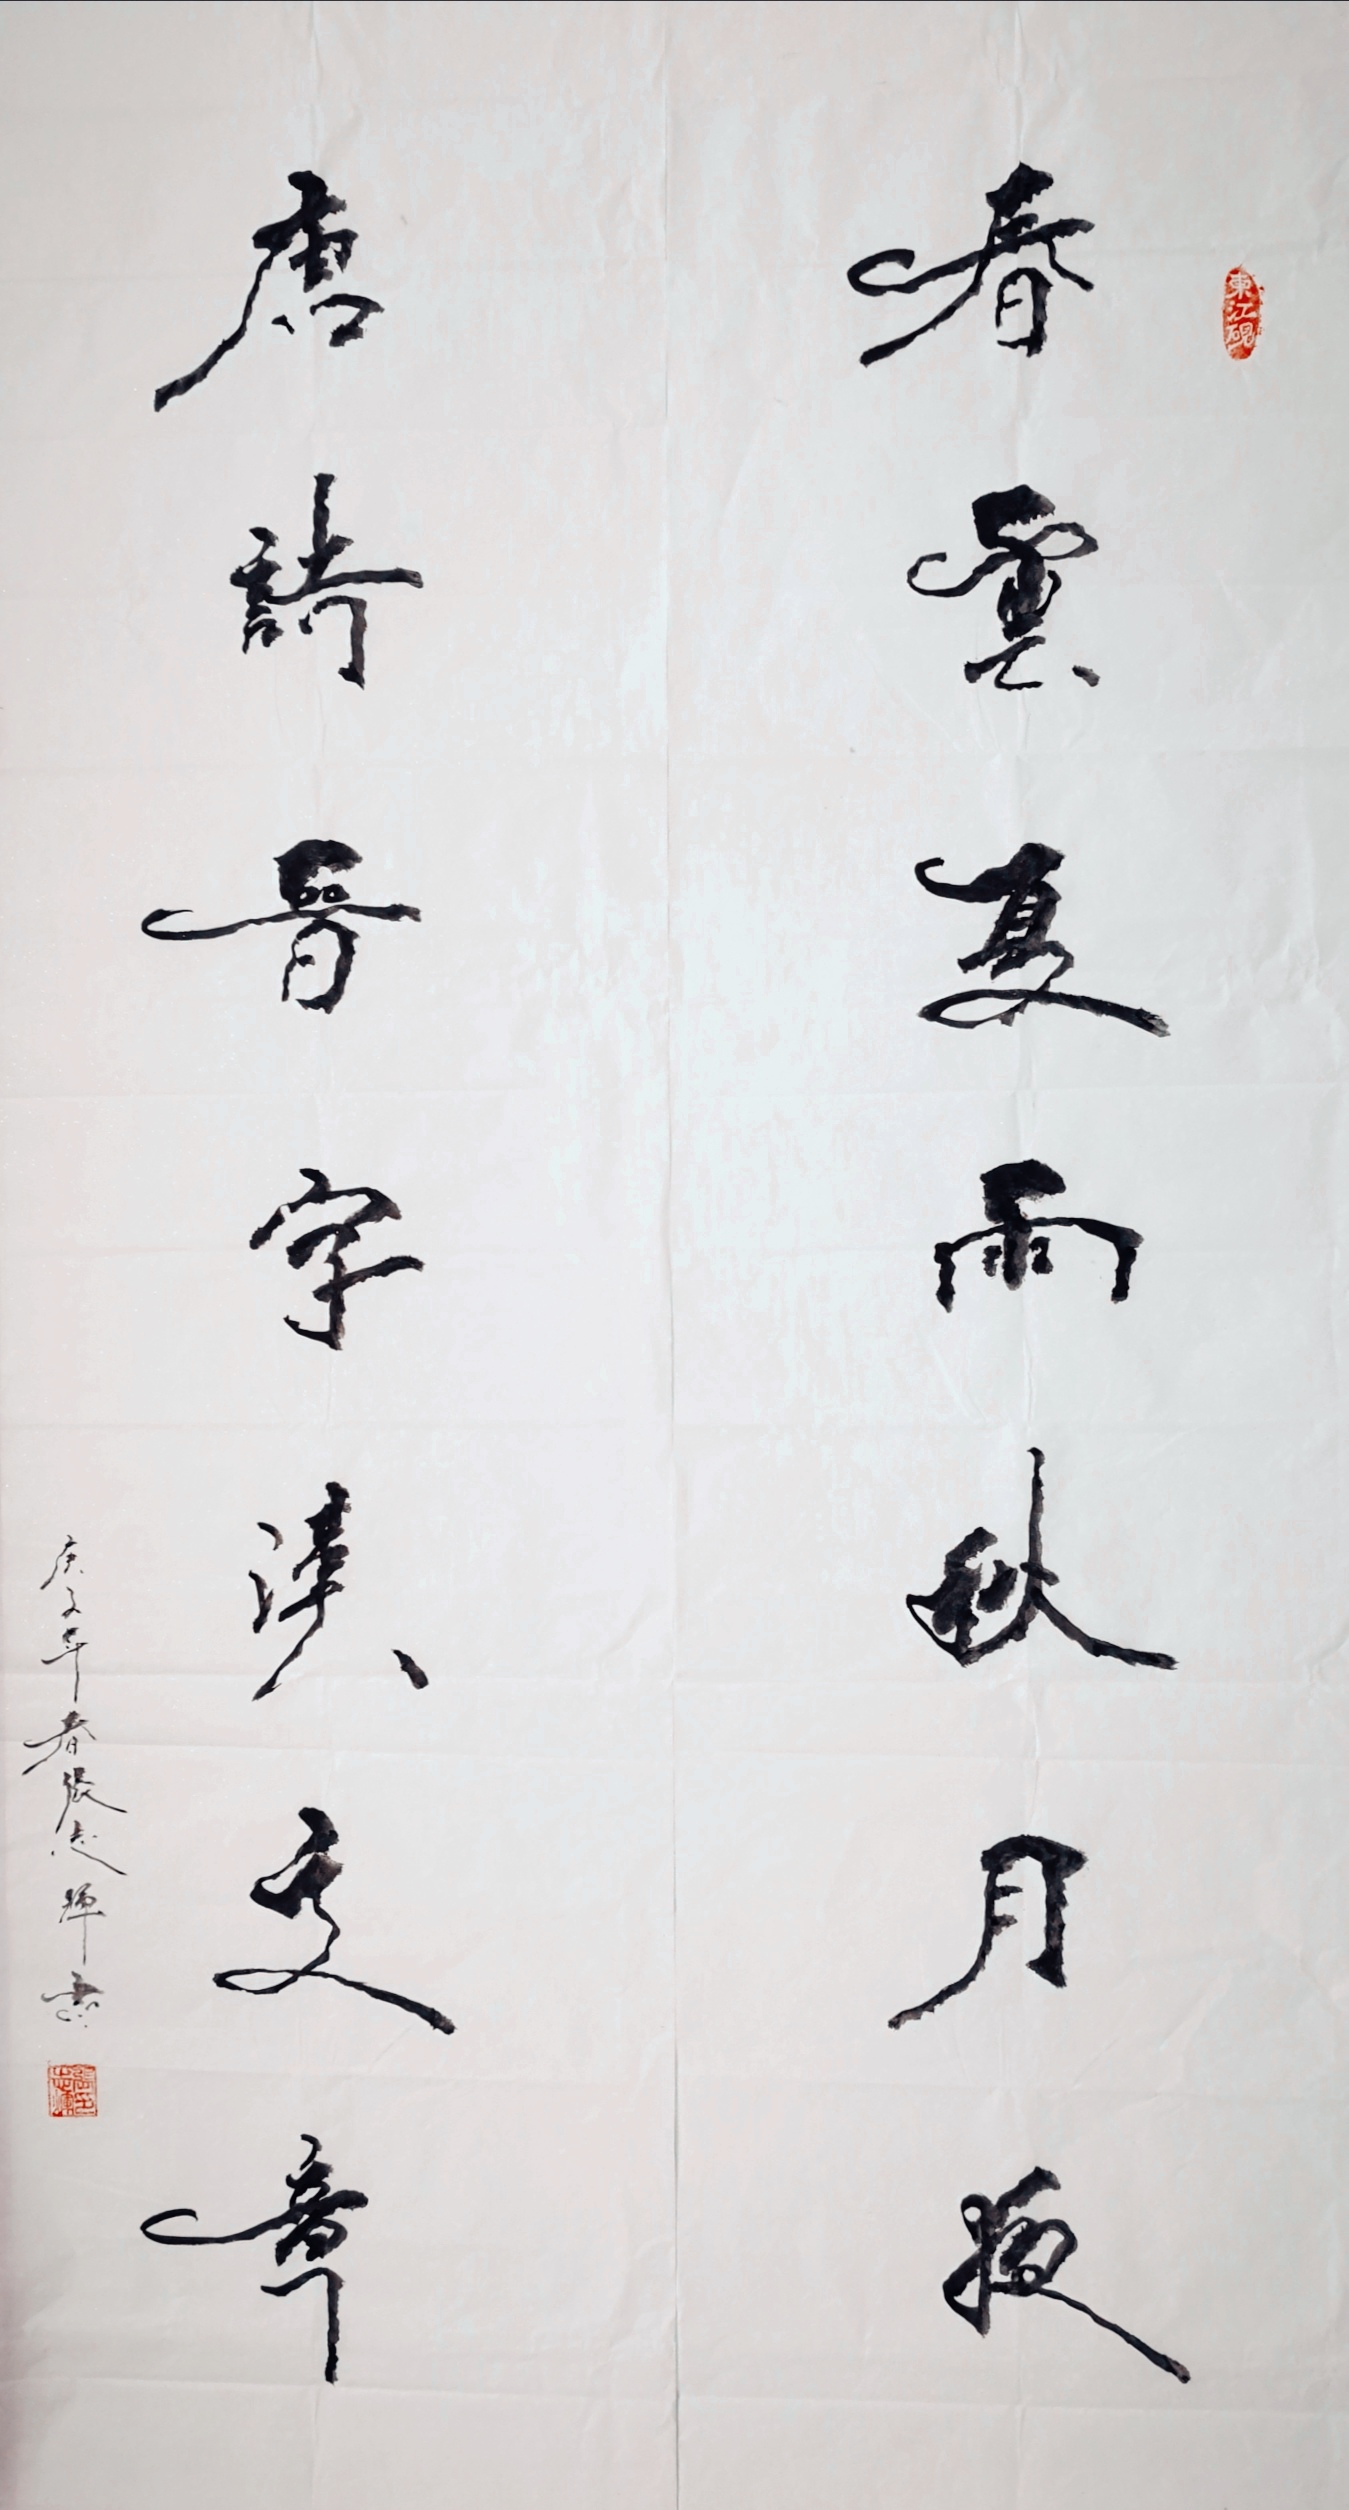 東江硯
春雲夏雨秋月夜
唐詩晉字漢文章
庚子年春張志輝書